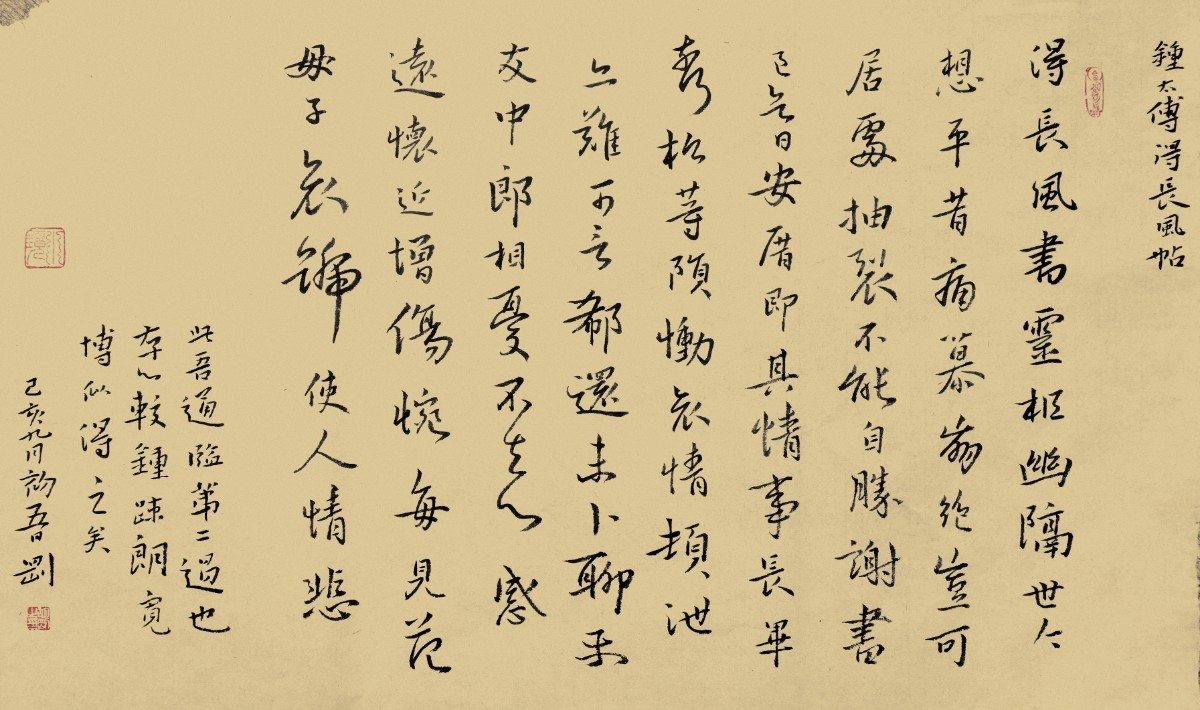 鍾太傅得長風帖
得長風書靈柩幽隔世々
想平昔痛慕崩絶豈可
居處抽裂不能自勝謝書
已至日安厝即其情事長畢
松等隕慟哀情頓泄
亦難可言郗還未卜聊示
友中郎相憂不去心感
遠懷近增傷惋每見范
母子哀號使人情悲
此吾通臨第二過也
存心較鍾疎朗寬
博似得之矣
己亥九月初吾日劉